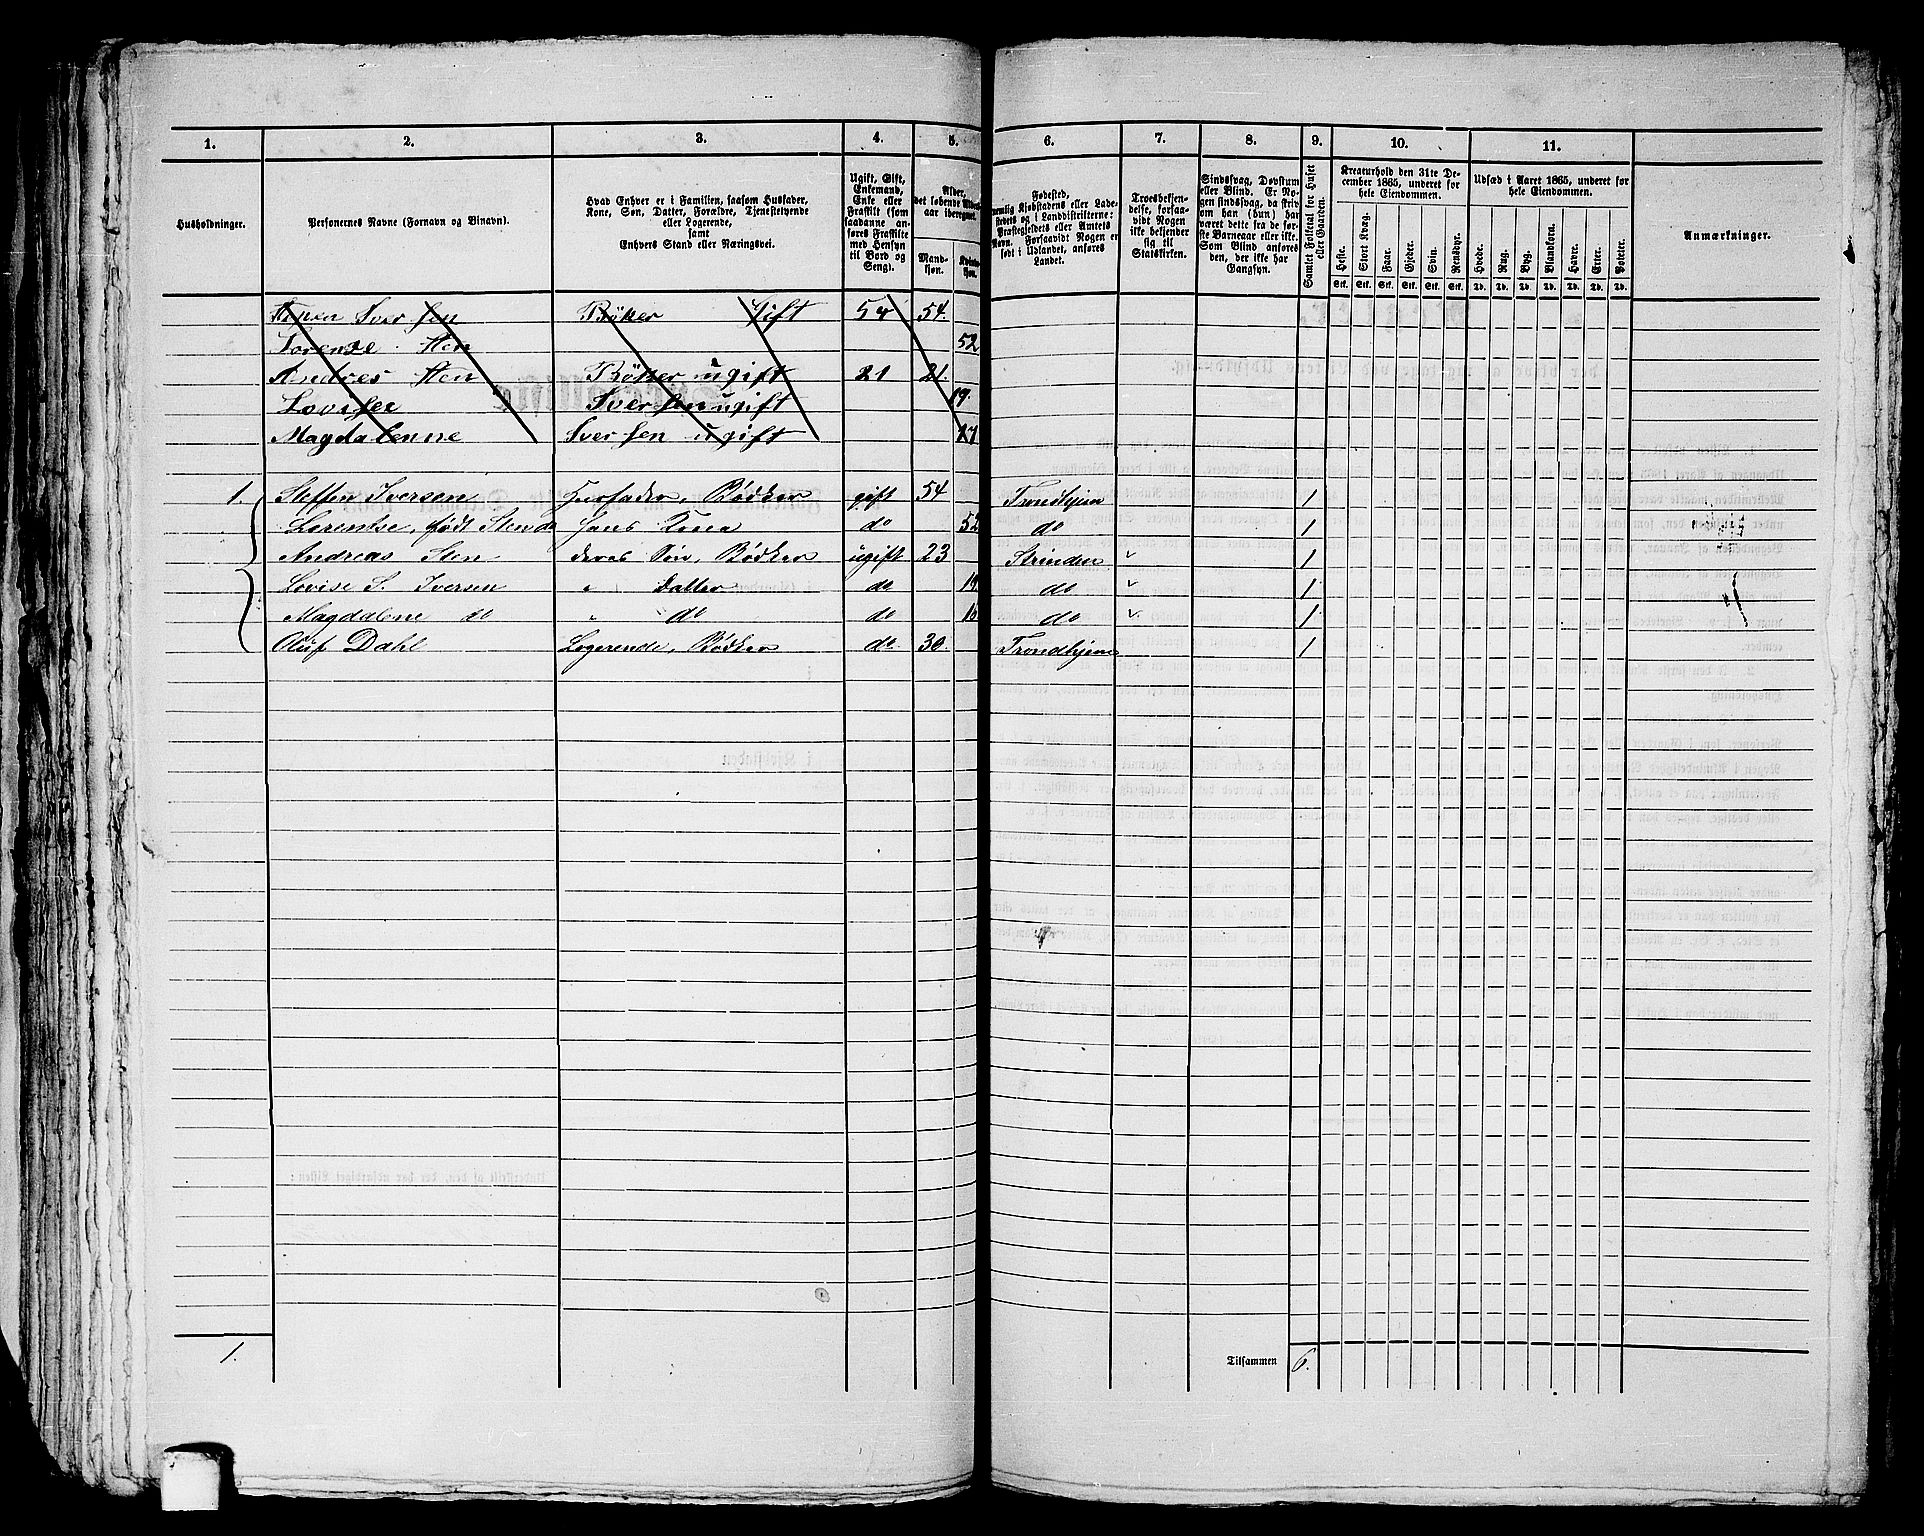 1. 2. 3. 4. 5. 6. 7. 8. 9. 10. 11.
Husholdninger.
Personernes Navne (Fornavn og Tilnavn).
Hvad Enhver er i Familien, saasom Husfader,
Kone, Søn, Datter, Forældre, Tjenestetyende
eller Logerende,
samt
Enhvers Stand eller Næringsvei.
Ugift, Gift,
Enkemand,
Enke eller
Fraskilt (som
saadanne an-
føres Fraskilte
med Hensyn
til Bord og
Seng).
Alder,
det løbende Alders-
aar iberegnet.
Mand-
kjøn.
Kvinde-
kjøn.
Fødested,
nemlig Kjøbstadens eller Lade-
stedets og i Landdistrikterne:
Præstegjeldets eller Amtets
Navn. Forsaavidt Nogen er
født i Udlandet, anføres
Landet.
Troesbekjen-
delse, forsaa-
vidt Nogen
ikke bekjender
sig til
Statskirken.
Sindssvag, Døvstum
eller Blind. Er No-
gen sindssvag, da skriv
om han (hun) har
været dette fra de før-
ste Barneaar eller ikke.
Som Blind anføres
den, der ikke har
Gangsyn.
Samlet Folketal for Huset
eller Gaarden.
Kreaturhold den 31te De-
cember 1865, underet for
hele Eiendommen.
Heste. Stort Kvæg. Faar. Gjeder. Svin. Rensdyr.
Stk. Stk. Stk. Stk. Stk. Stk.
Udsæd i Aaret 1865, underet for
hele Eiendommen.
Hvede. Rug. Byg. Blandkorn. Havre. Erter. Poteter.
Td. Td. Td. Td. Td. Td. Td.
Anmærkninger.
Iversen Bøkker Gift 54 54.
Lorense Sten 52
Andres Sten Bøkker ugift 21 21.
Lovise Iversen ugift 19.
Magdalenne Iversen ugift 17
1. Steffen Iversen Huusfader, Bødker gift 54 Trondhjem 1
Lorentse, født Stende Hans Kone do 52 do 1
Andreas Sten deres Søn, Bødker ugift 23 Strinden 1
Lovise S. Iversen " Datter do 19. do 1
Magdalene do " do do do 1
Oluf Dahl Logerende, Bødker do. 30. Trondhjem 1
1. Tilsammen 6.